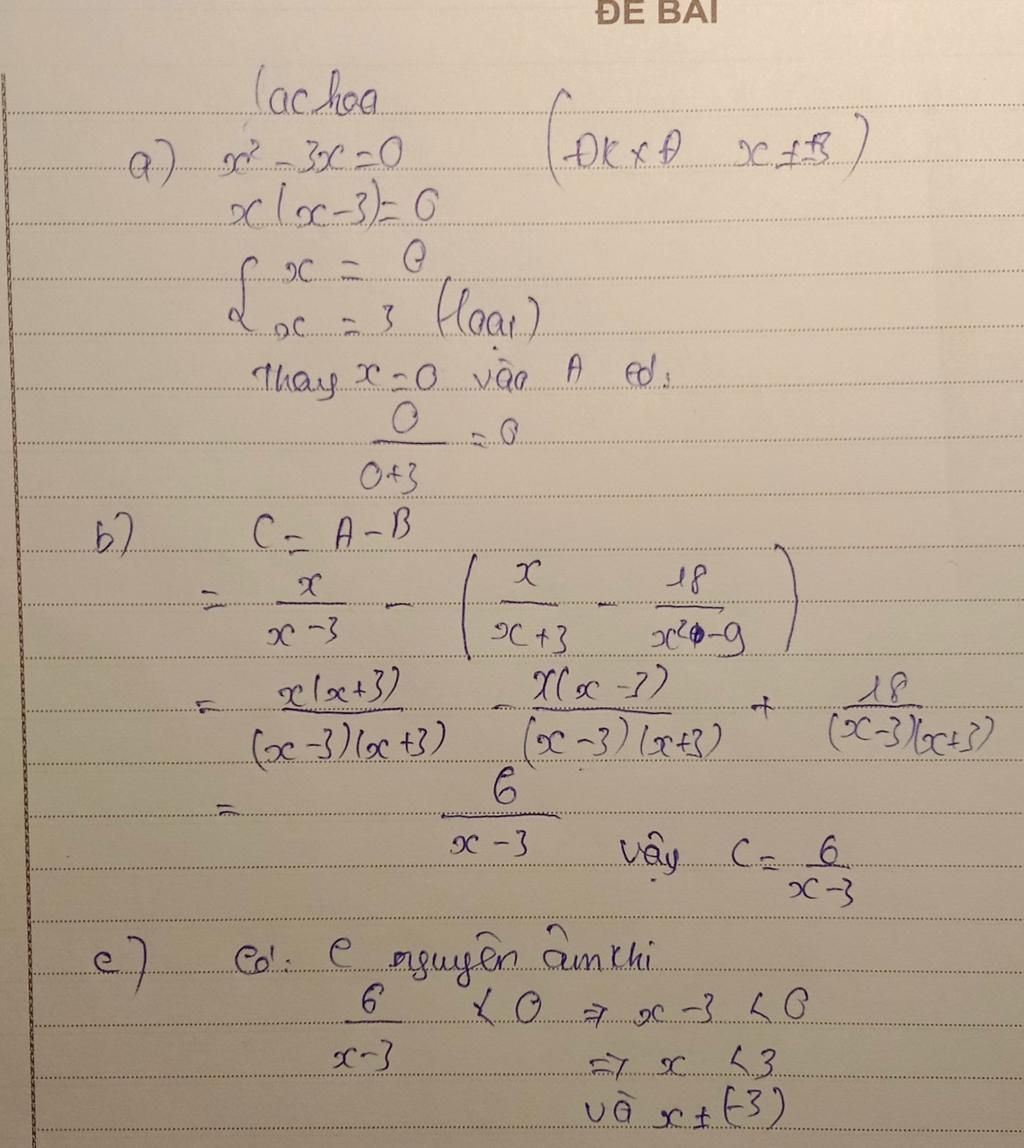 ĐỀ BÀI
lac hoa
a) x² - 3x = 0 (ĐKXĐ x ≠ ±3)
x(x-3) = 0
{ x = 0
x = 3 (loại)
Thay x = 0 vào A có:
0/(0+3) = 0
b) C = A - B
= x/(x-3) - (x/(x+3) - 18/(x²-9))
= x(x+3)/((x-3)(x+3)) - x(x-3)/((x-3)(x+3)) + 18/((x-3)(x+3))
= 6/(x-3) Vậy C = 6/(x-3)
c) Có: C nguyên âm khi
6/(x-3) < 0 => x-3 < 0
=> x < 3
và x ≠ (-3)